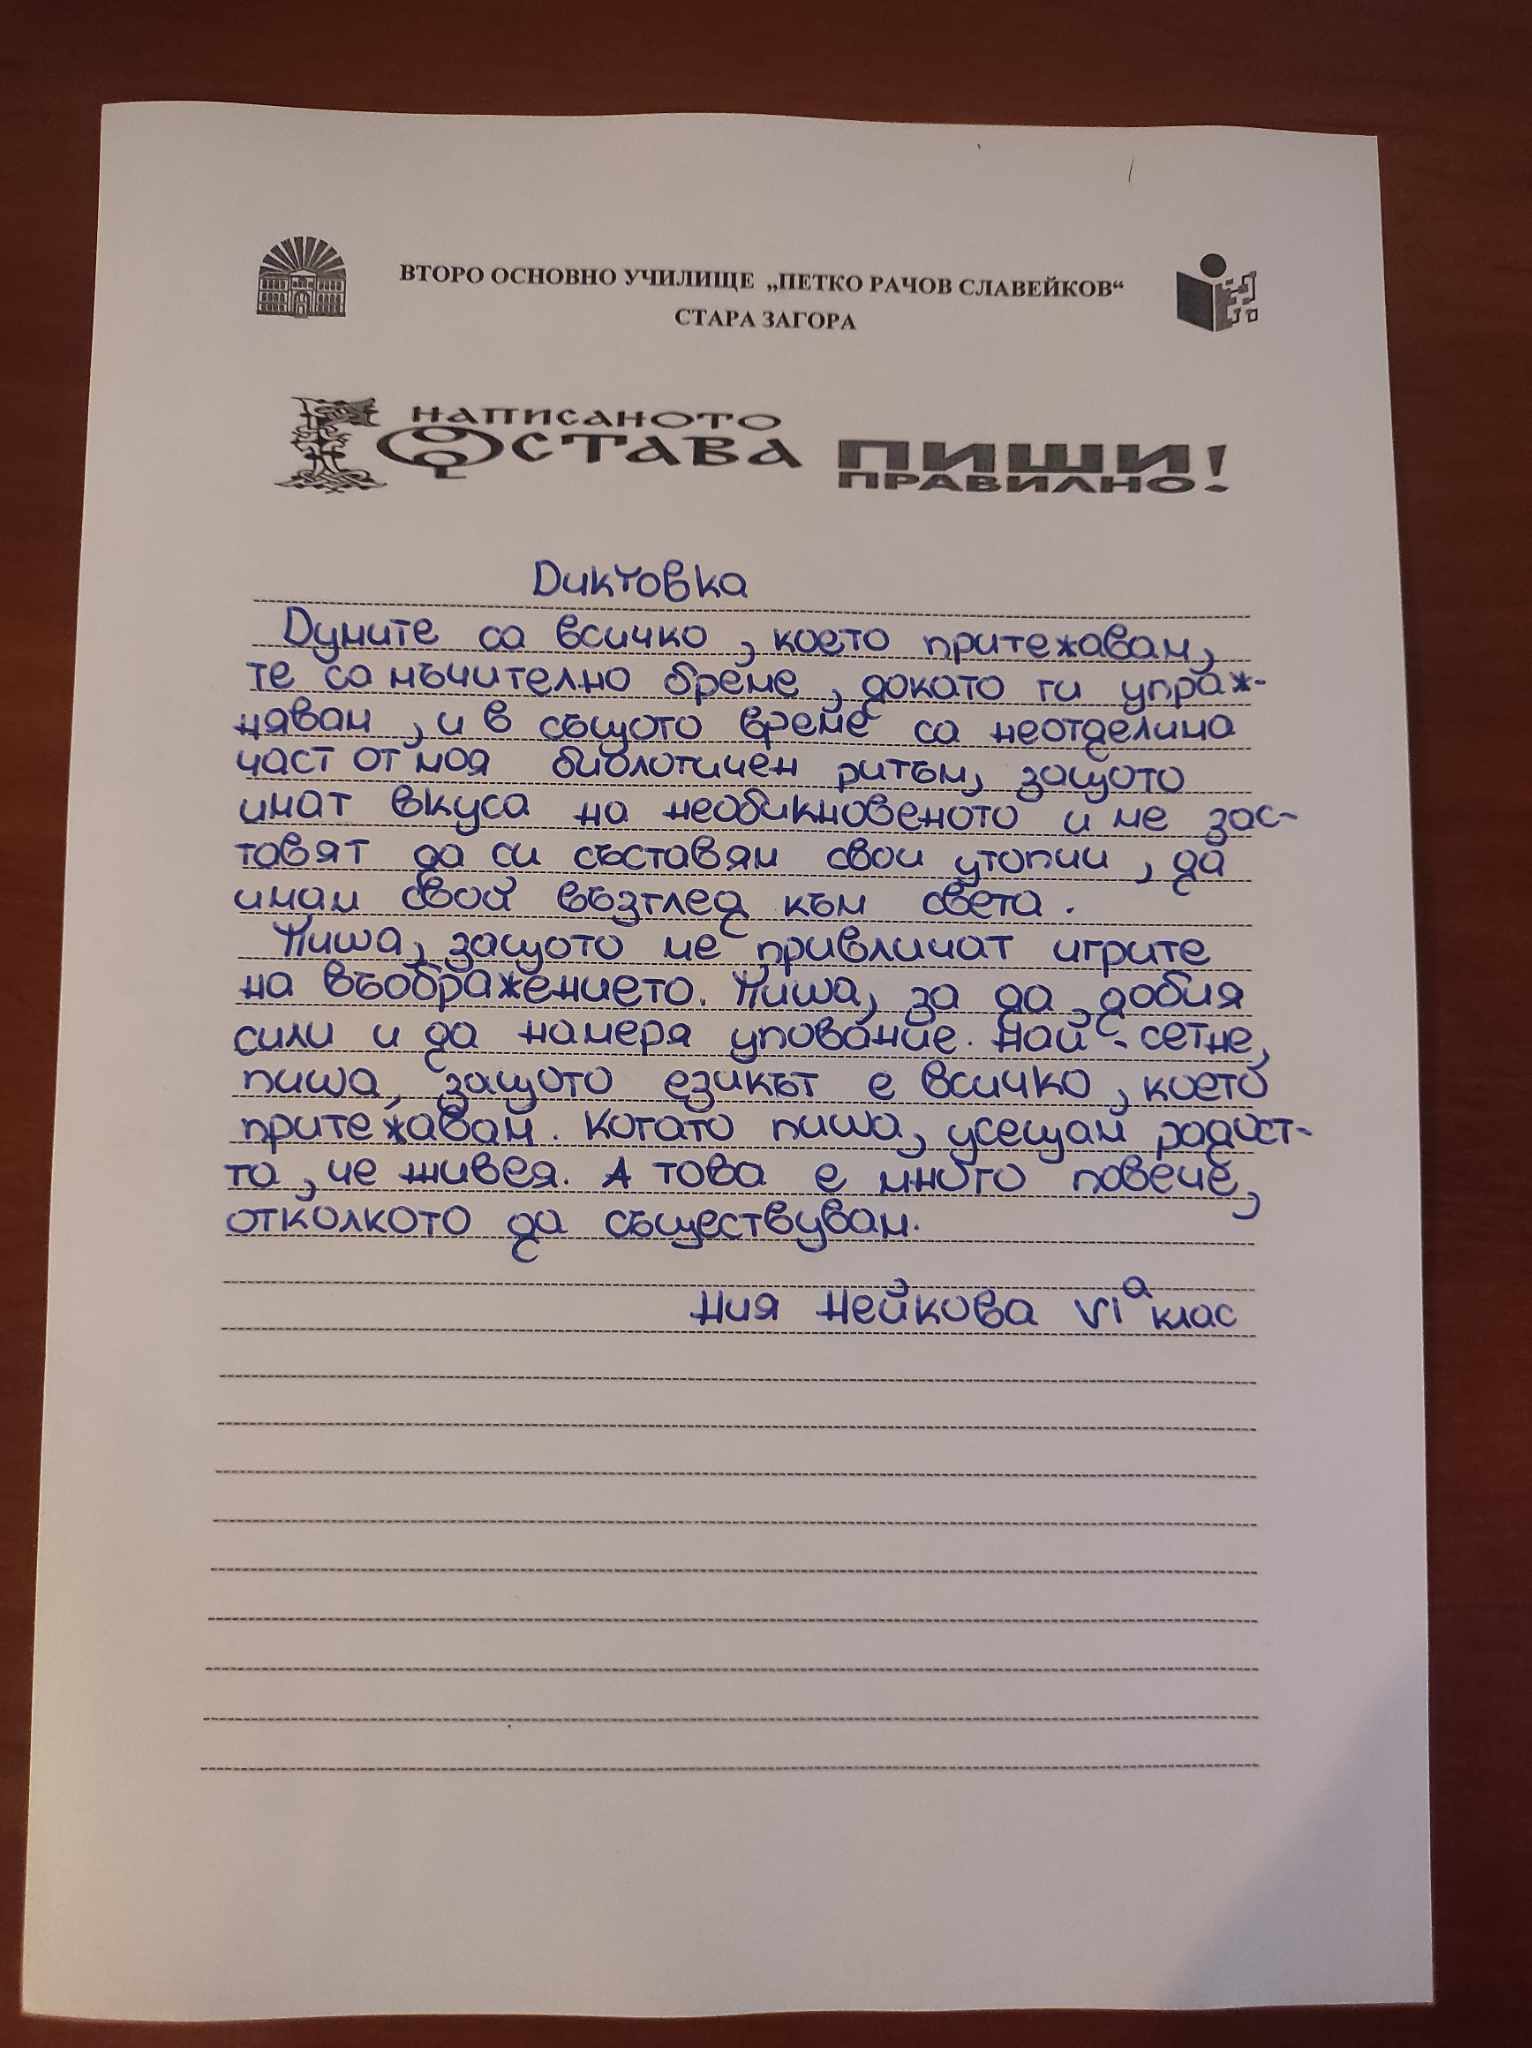 ВТОРО ОСНОВНО УЧИЛИЩЕ „ПЕТКО РАЧОВ СЛАВЕЙКОВ“
СТАРА ЗАГОРА
НАПИСАНОТО
ОСТАВА ПИШИ
ПРАВИЛНО!
Диктовка
Думите са всичко, което притежавам,
те са мъчително бреме, докато ги упраж-
нявам, и в същото време са неотделима
част от моя библотичен ритъм, защото
имат вкуса на необикновеното и ме зас-
тавят да си съставям свои утопии, да
имам свой възглед към света.
Пиша, защото ме привличат игрите
на въображението. Пиша, за да добия
сили и да намеря упование. Най-сетне,
пиша, защото езикът е всичко, което
притежавам. Когато пиша, усещам радост-
та, че живея. А това е много повече,
отколкото да съществувам.
Ния Нейкова VIа клас